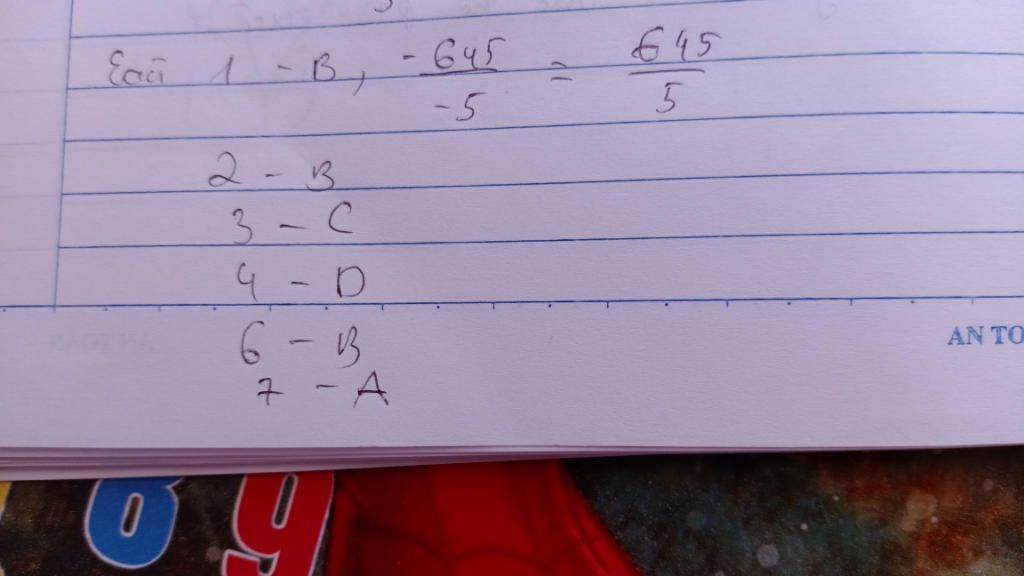 1 - B, -645/-5 = 645/5
2 - B
3 - C
4 - D
AN TO
6 - B
7 - A
89